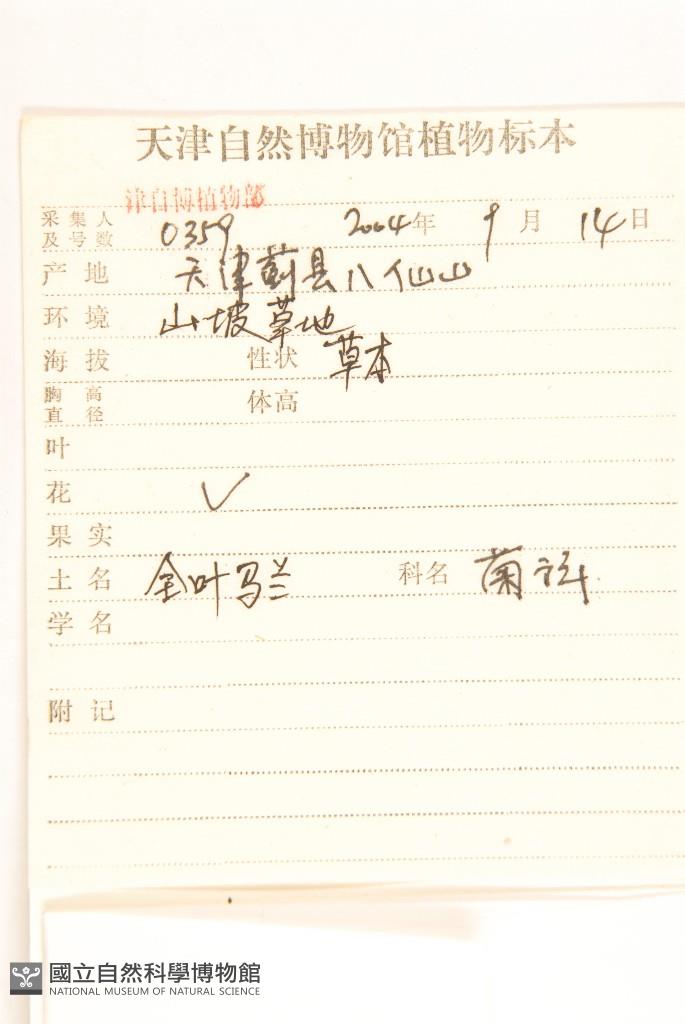 天津自然博物馆植物标本
津自博植物部
采集人及号数 0359 2004年 9月 14日
产地 天津蓟县八仙山
环境 山坡草地
海拔 性状 草本
胸高直径 体高
叶
花 ✓
果实
土名 全叶马兰 科名 菊科
学名
附记
國立自然科學博物館
NATIONAL MUSEUM OF NATURAL SCIENCE